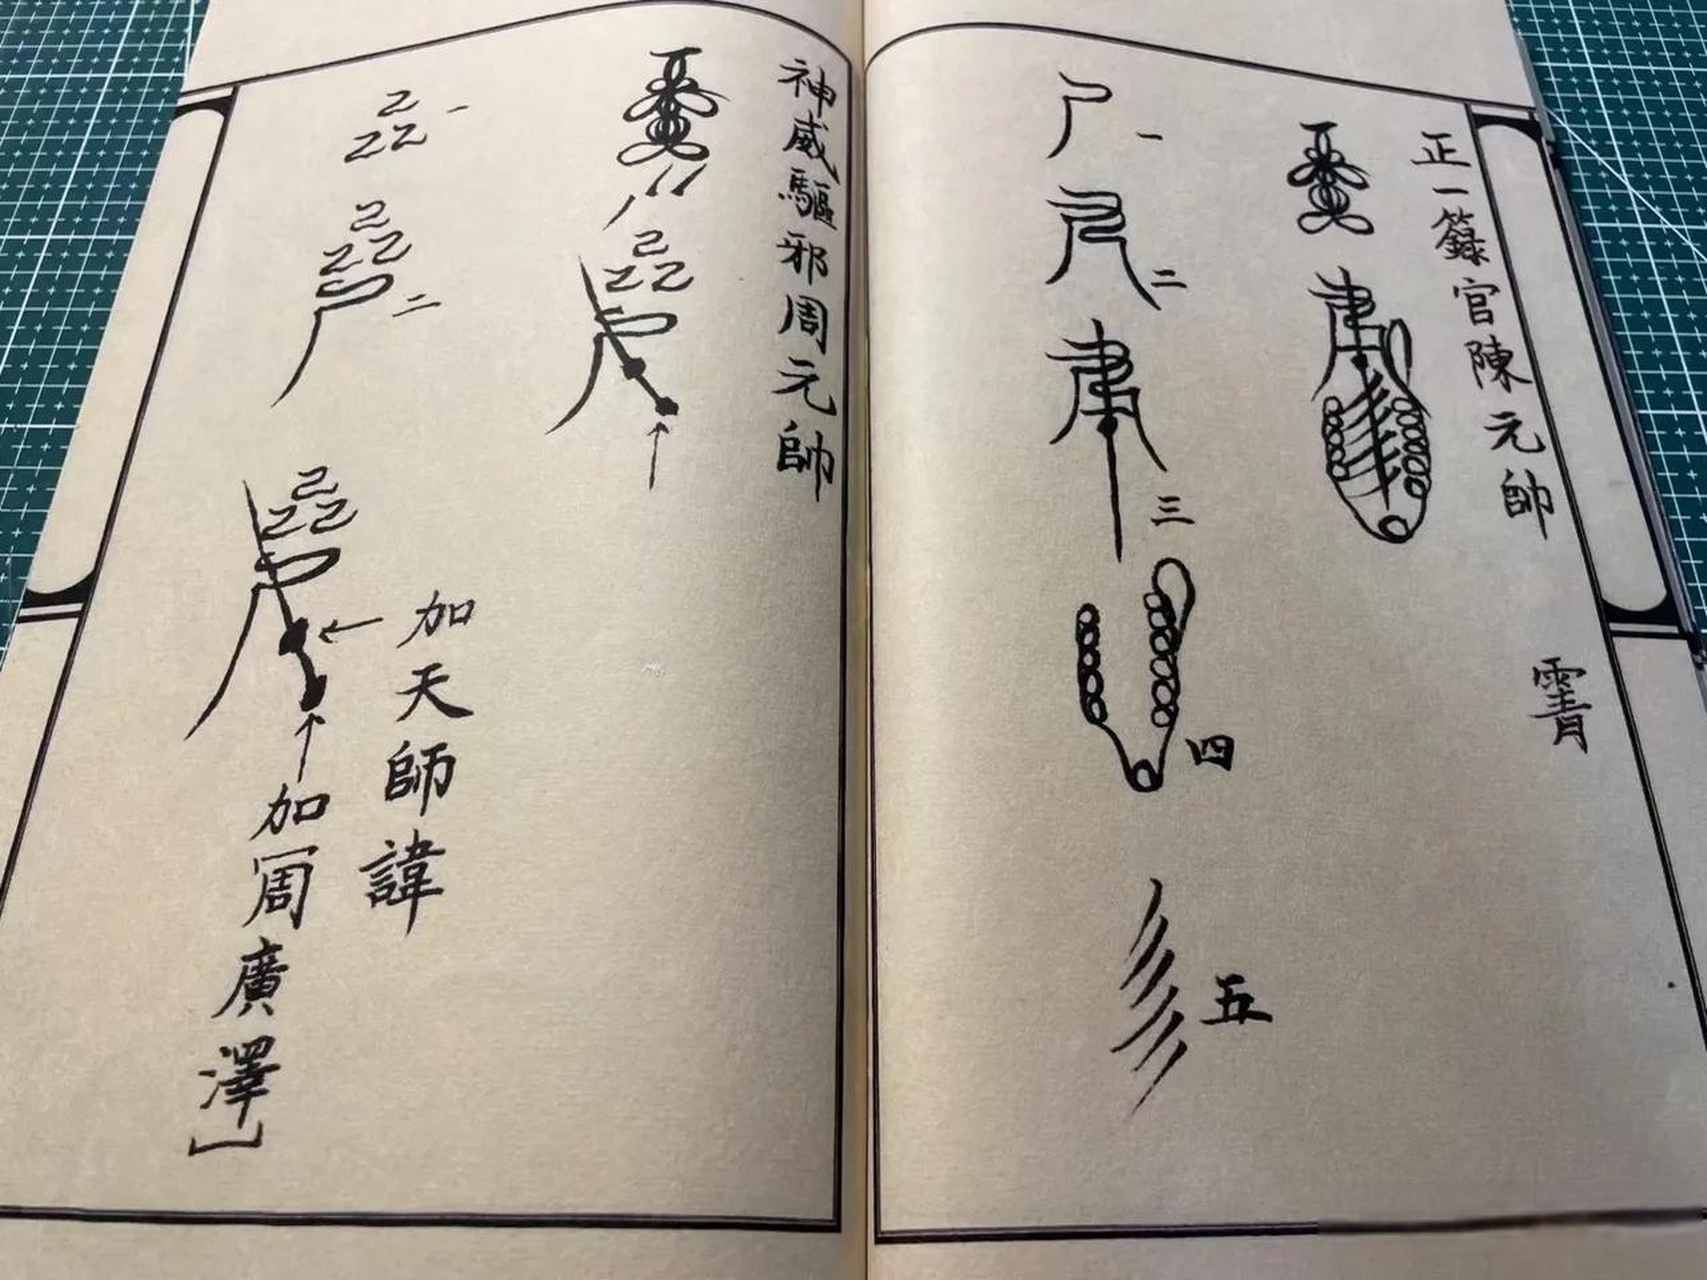 正一籙官陳元帥
一
二
三
四
五
神威驅邪周元帥
一
二
加天師諱
加周廣澤